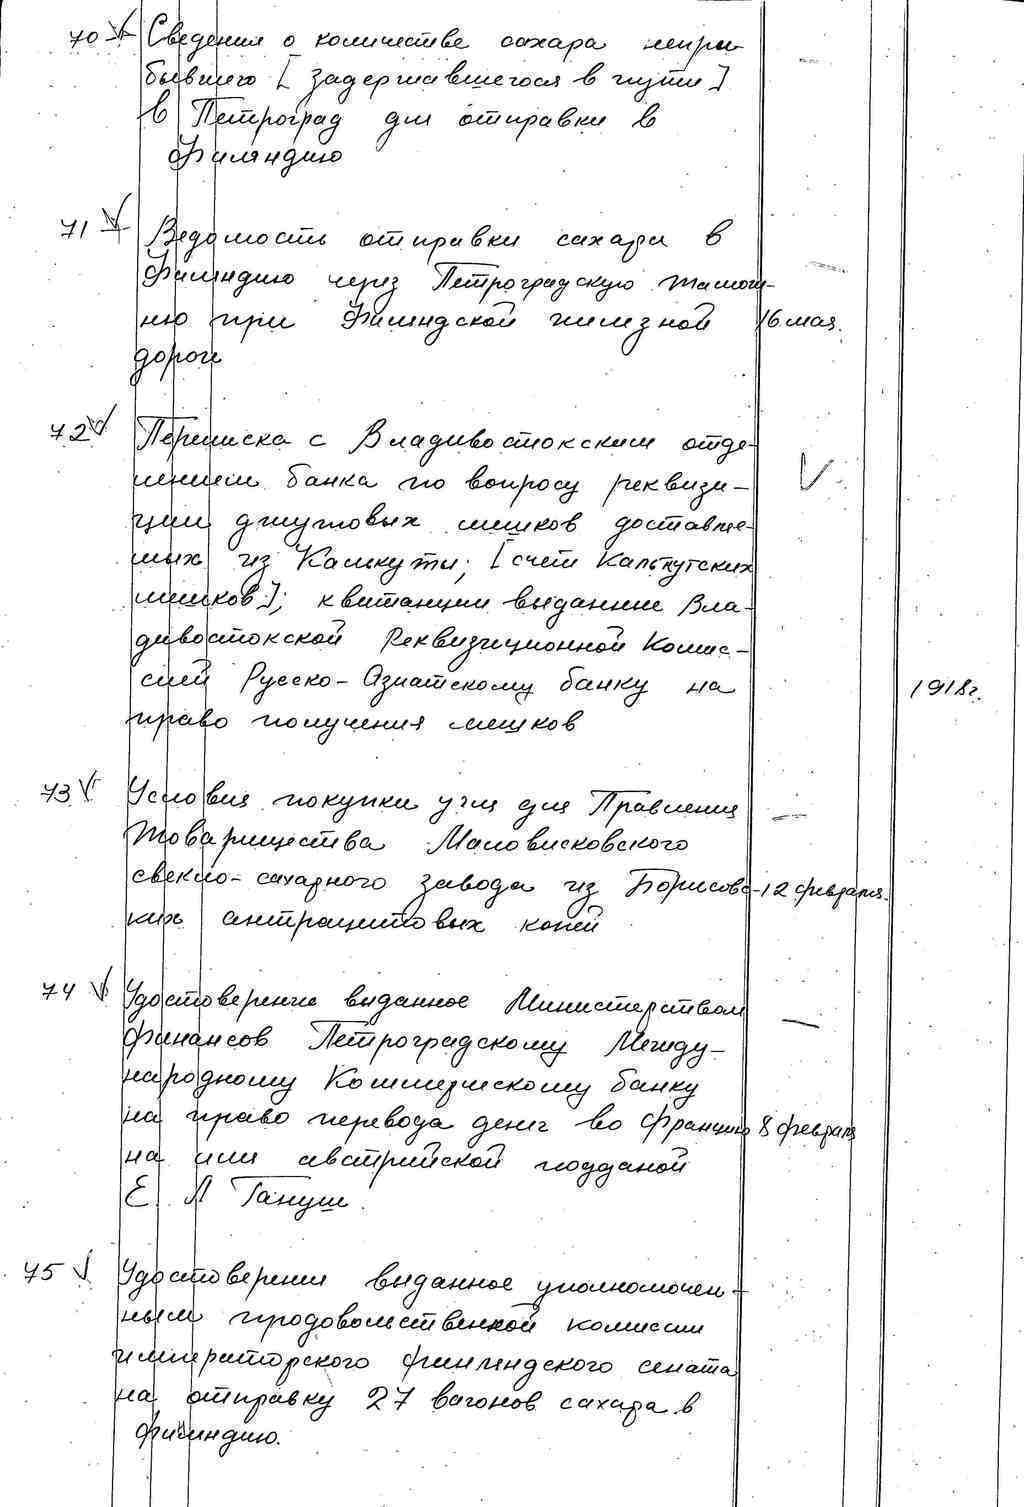 70 Сведения о количестве сахара непри-
бывшего [задержавшегося в пути]
в Петроград для отправки в
Финляндию
71 Ведомость отправки сахара в
Финляндию через Петроградскую таможе-
ню при Финляндской железной 16 мая.
дороги
72 Переписка с Владивостокским отде-
лением банка по вопросу реквизи-
ции джутовых мешков доставляе-
мых из Калькуты; [счета Калькутских
мешков]; квитанции выданные Вла-
дивостокской Реквизиционной Комис-
сией Русско-Азиатскому банку на 1918г.
право получения мешков
73 Условия покупки угля для Правления
Товарищества Маловисковского
свекло-сахарного завода из Борисовс- 12 февраля.
ких антрацитовых копей
74 Удостоверение выданное Министерством
финансов Петроградскому Между-
народному Коммерческому банку
на право перевода денег во Францию 8 февраля
на имя австрийской подданой
Е. Л Гануш.
75 Удостоверение выданное уполномочен-
ным продовольственной комиссии
императорского финляндского сената
на отправку 27 вагонов сахара в
финляндию.